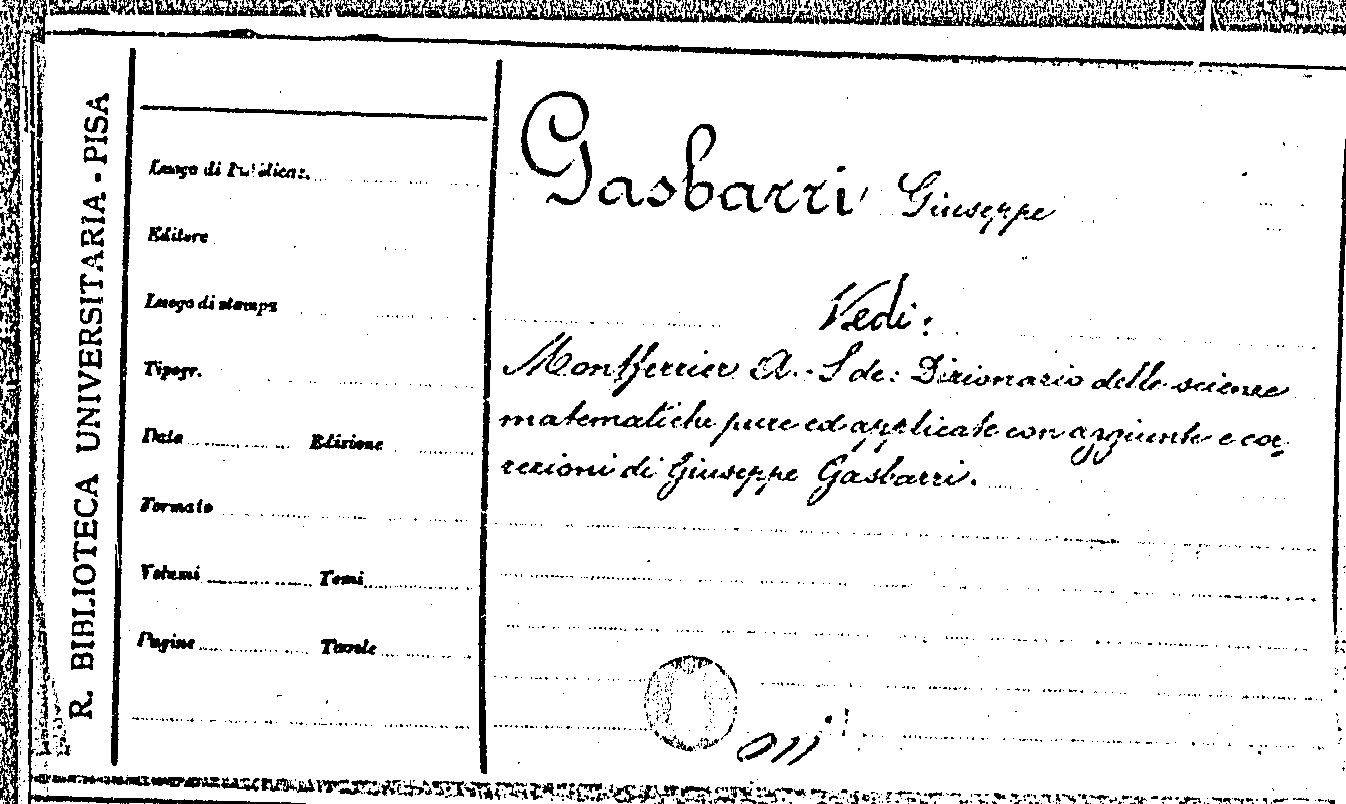 R. BIBLIOTECA UNIVERSITARIA - PISA
Luogo di Pubblicaz.
Editore
Luogo di stampa
Tipogr.
Data Edizione
Formato
Volumi Tomi
Pagine Tavole
Gasbarri Giuseppe
Vedi:
Montferrier A.-S de: Dizionario delle scienze
matematiche pure ed applicate con aggiunte e cor-
rezioni di Giuseppe Gasbarri.